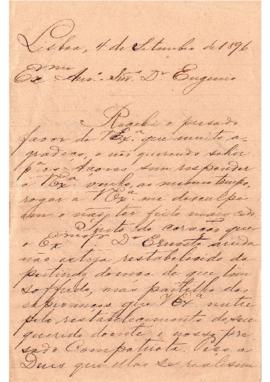 Lisboa, 4 de Setembro de 1896
Exmo Amo. Snr. Dr Eugenio
Recebi o presado
favor de V Exa. que muito a-
gradeço, e não querendo saber
pa. os Açores, sem responder
a V Exa. venho, ao mesmo tempo,
rogar a V Exa. me descul-
o não ter feito mais cedo.
Sinto do coração que
o Exmo Dr Ernesto ainda
não esteja restabelecido da
doença de que tem
soffrido, mas partilho das
esperanças que V Exa. nutre
pelo restabelecimento do seu
querido doente e nosso pre-
sado Compatriota. Peço a
Deus que ellas se realisem